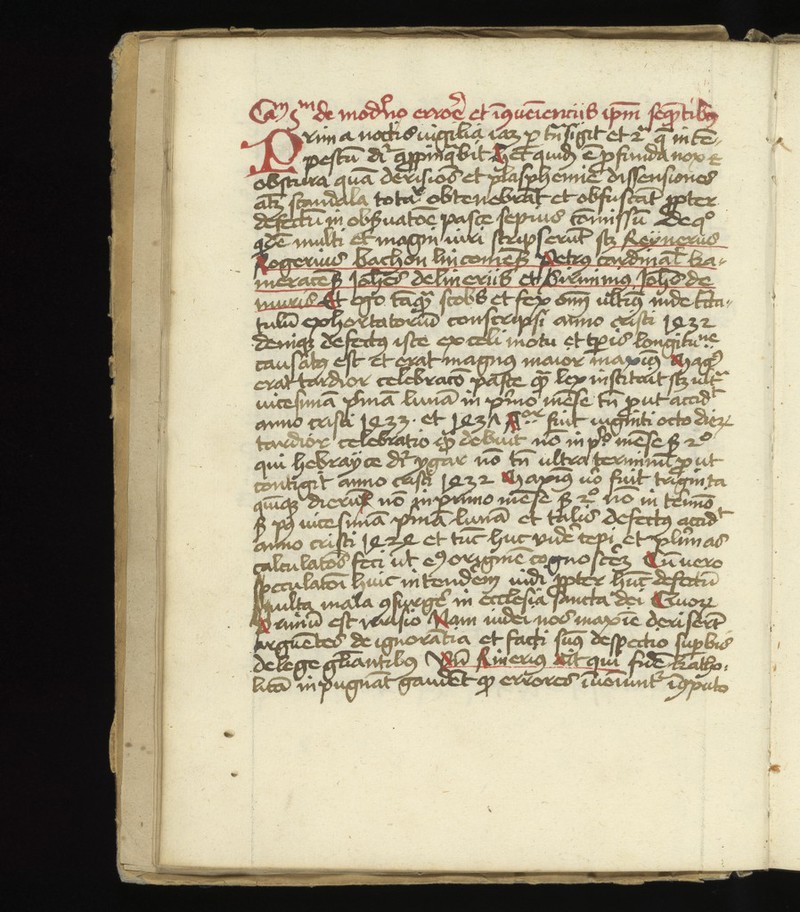 Cam 3m de modno errore et inqueienciis ipm sequetibus
Prima noctis vigilia iam p tnsigit et 2a q inte-
pestu dr appinqbit Hec quid e pfunda nox
obscura qua derisios et plasphemie dissensiones
atz scandala tota obtenebrat et obfuscat ppter
defectu in obsuatoe pasce sepius comissu De q
qde multi et magni viri scripserut sz Reynerius
Rogerius bachon lincomesz Petrus cardinal ca-
meracesz Johes de lineriis et firminus Johs de
muris Et ego taqz scobs et fex oim ultim inde tra-
tatulu exhortatoriu conscripsi anno cristi 1432
denique defectus iste ex celi motu et tpis longitune
causatus est Et erat magnus maior maxius Magus
erat tardior celebraco pasce qz lex instituit sz ult
vicesimam prima luna in primo mese tn put accidt
anno cristi 1433 et 1437 Maior fuit viginti octo dierz
tardior celebratio qz debuit no in po mese sz 2o
qui hebrayce dr ygar no tn ultra terminu put
contigit anno cristi 1432 Maximus vo fuit triginta
quinque dierum non in primo mense sz 2o no in teimo
sz post vicesima prima luna et talis defectus accidt
anno cristi 1424 et tuc huc videre cepi et plimas
calculatoes feci ut ei origine cognoscerez Cu vero
speculatoni huic intenderem vidi ppter huc defectu
multa mala consurgere in ecclesia sancta dei Quorz
Primu est irrisio Nam iudei nos maxie deriserut
arguentes de ignorantia et facti sunt despectio supbis
de lege gliantibus Vn Rinerius ait qui fide catho-
lica inpugnat gaudet qz errores inueiunt in computo